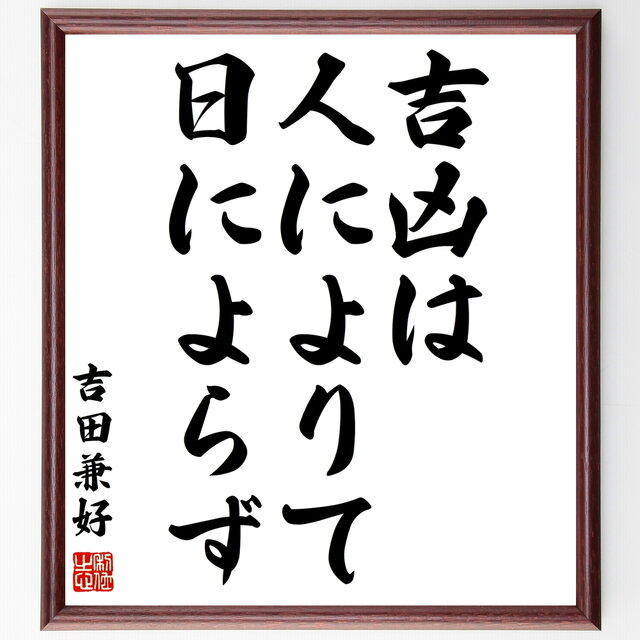 吉凶は
人によりて
日によらず
吉田兼好